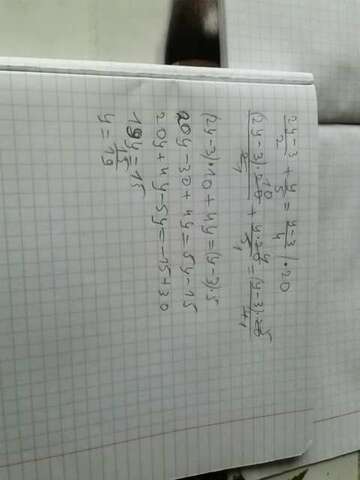 (2y-3)/2 + y/5 = (y-3)/4 /·20
(2y-3)·20/2 + y·20/5 = (y-3)·20/4
(2y-3)·10+4y=(y-3)·5
20y-30+4y=5y-15
20y+4y-5y=-15+30
19y=15
y=15/19